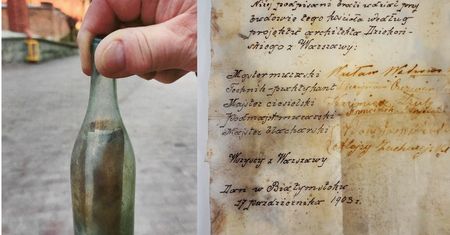 Niżej podpisani brali udział przy
budowie tego kościoła według
projektu architekta Dziekoń-
skiego z Warszawy:
Majster mularski
Technik-praktykant
Majster ciesielski
Podmajstrz mularski
Majster blacharski
Wszyscy z Warszawy
Dan w Białymstoku
17 października 1903 r.